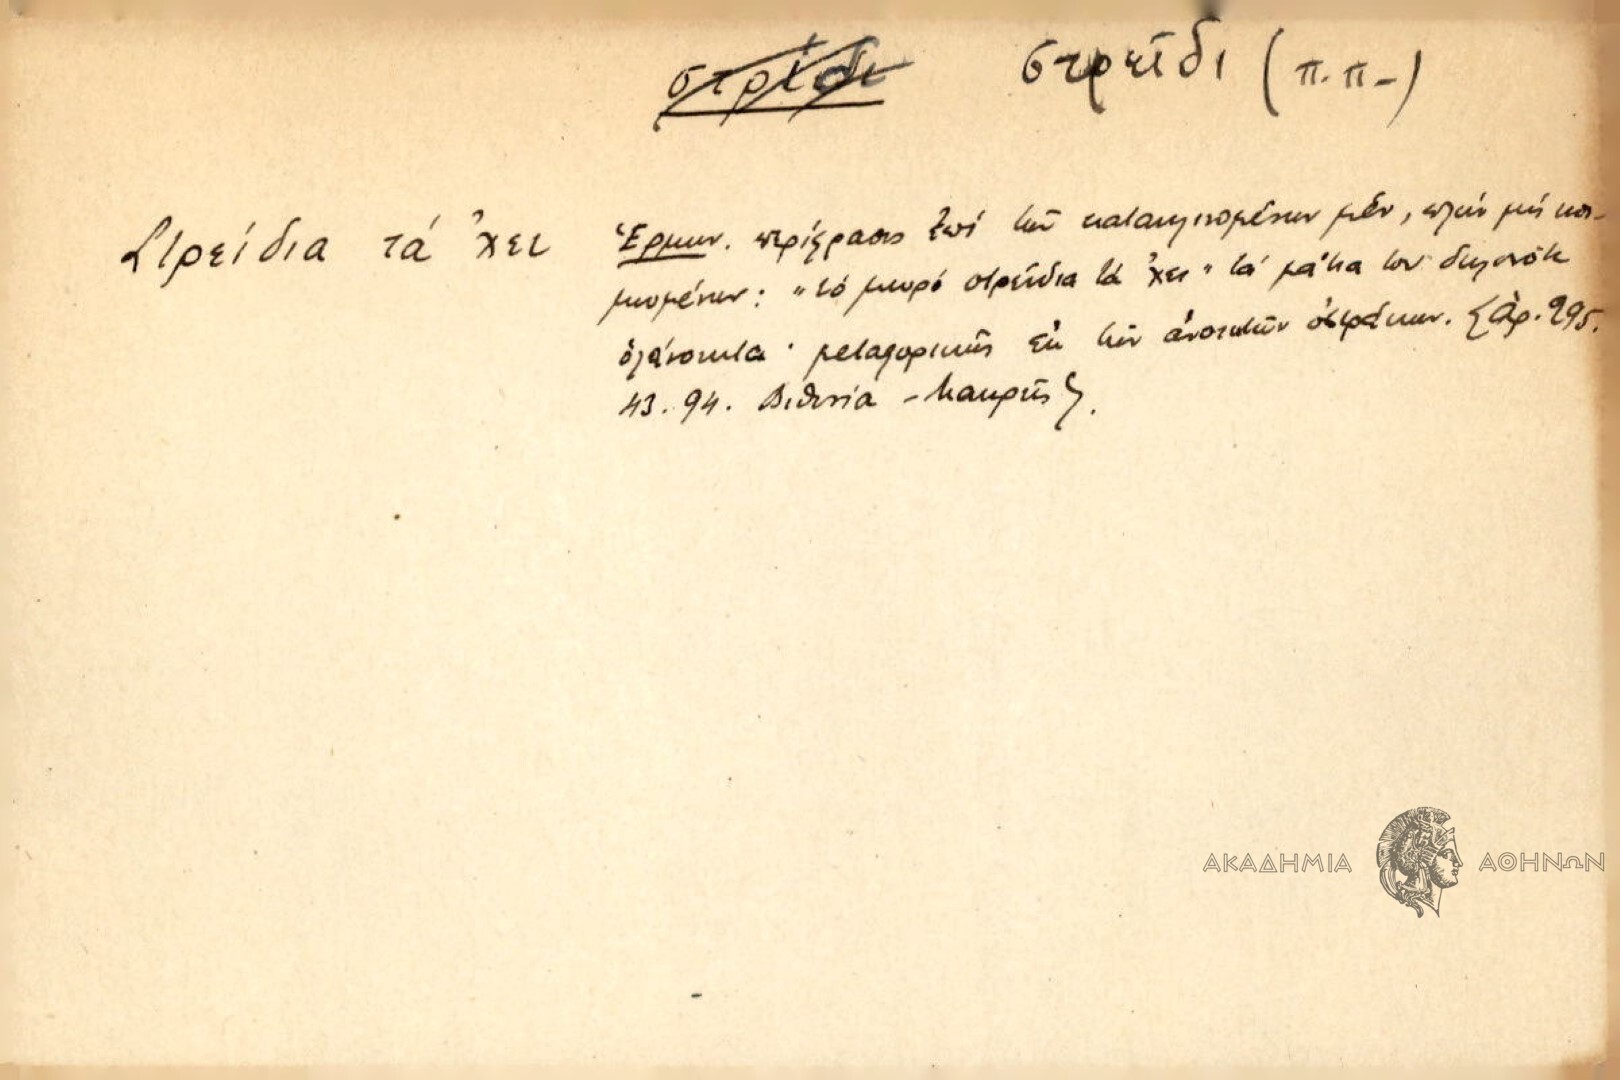 στρίδι στρεῖδι (π.π.-)
Στρείδια τά 'χει Ἑρμην. περίφρασις ἐπί τῶν κατακλινομένων μέν, πλήν μή κοι-
μωμένων: "τό μωρό στρείδια τά 'χει" τά μάτια του δηλονότι
ὁλάνοικτα· μεταφορικῶς ἐκ τῶν ἀνοικτῶν ὀστράκων. {Ἀρ. 295.
43. 94. Βιθυνία - Μακρῆς}.
ΑΚΑΔΗΜΙΑ ΑΘΗΝΩΝ